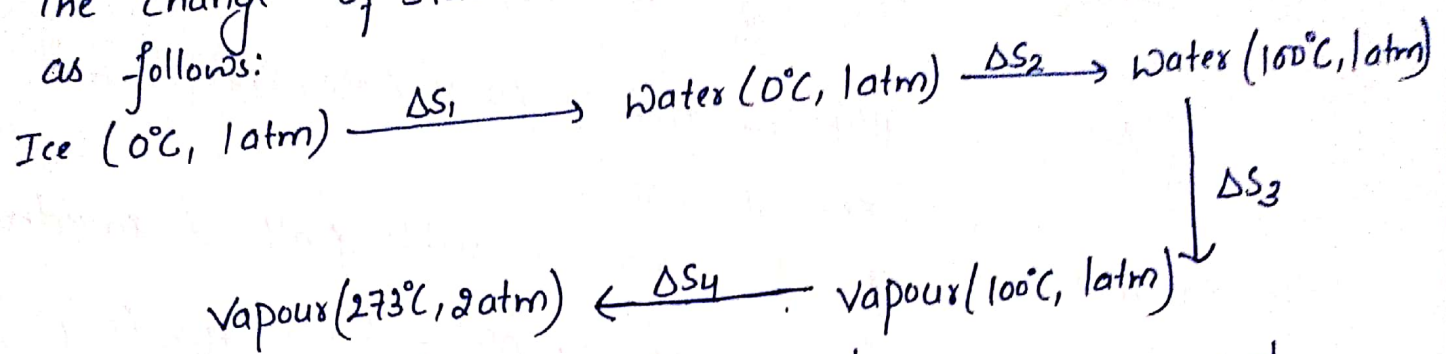 The change of
as follows:
Ice (0°C, 1atm) —ΔS₁→ Water (0°C, 1atm) —ΔS₂→ Water (100°C, 1atm)
↓ ΔS₃
Vapour (273°C, 2atm) ←ΔS₄— Vapour (100°C, 1atm)